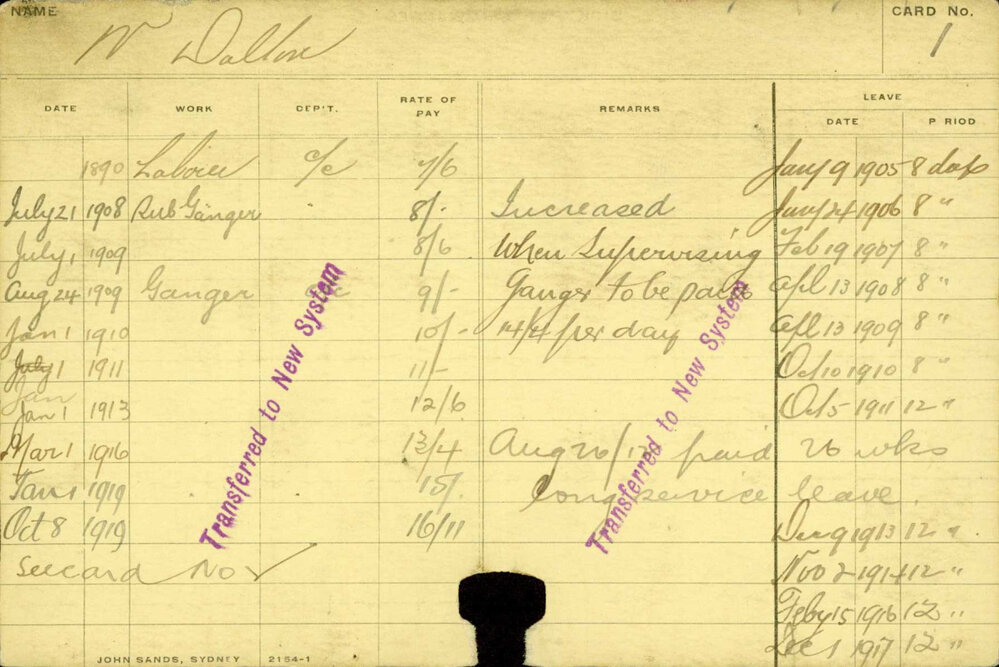 NAME
CARD No.
W Dalton
1
DATE WORK DEP'T. RATE OF PAY REMARKS LEAVE
DATE P RIOD
1890 Labour C/c 7/6 Jany 9 1905 8 days
July 21 1908 Sub Ganger 8/- Increased Jany 24 1906 8 "
July 1 1909 8/6 When Supervising Feb 19 1907 8 "
Aug 24 1909 Ganger 9/- Ganger to be paid Apl 13 1908 8 "
Jan 1 1910 10/- 14/4 per day Apl 13 1909 8 "
July 1 1911 11/- Oct 10 1910 8 "
Jan
Jan 1 1913 12/6 Oct 5 1911 12 "
Mar 1 1916 13/4 Aug 26/12 paid 26 wks
Jan 1 1919 15/- long service leave.
Oct 8 1919 16/11 Dec 9 1913 12 "
See card No Nov 2 1914 12 "
Feby 15 1916 12 "
Dec 1 1917 12 "
Transferred to New System
Transferred to New System
JOHN SANDS, SYDNEY 2154-1